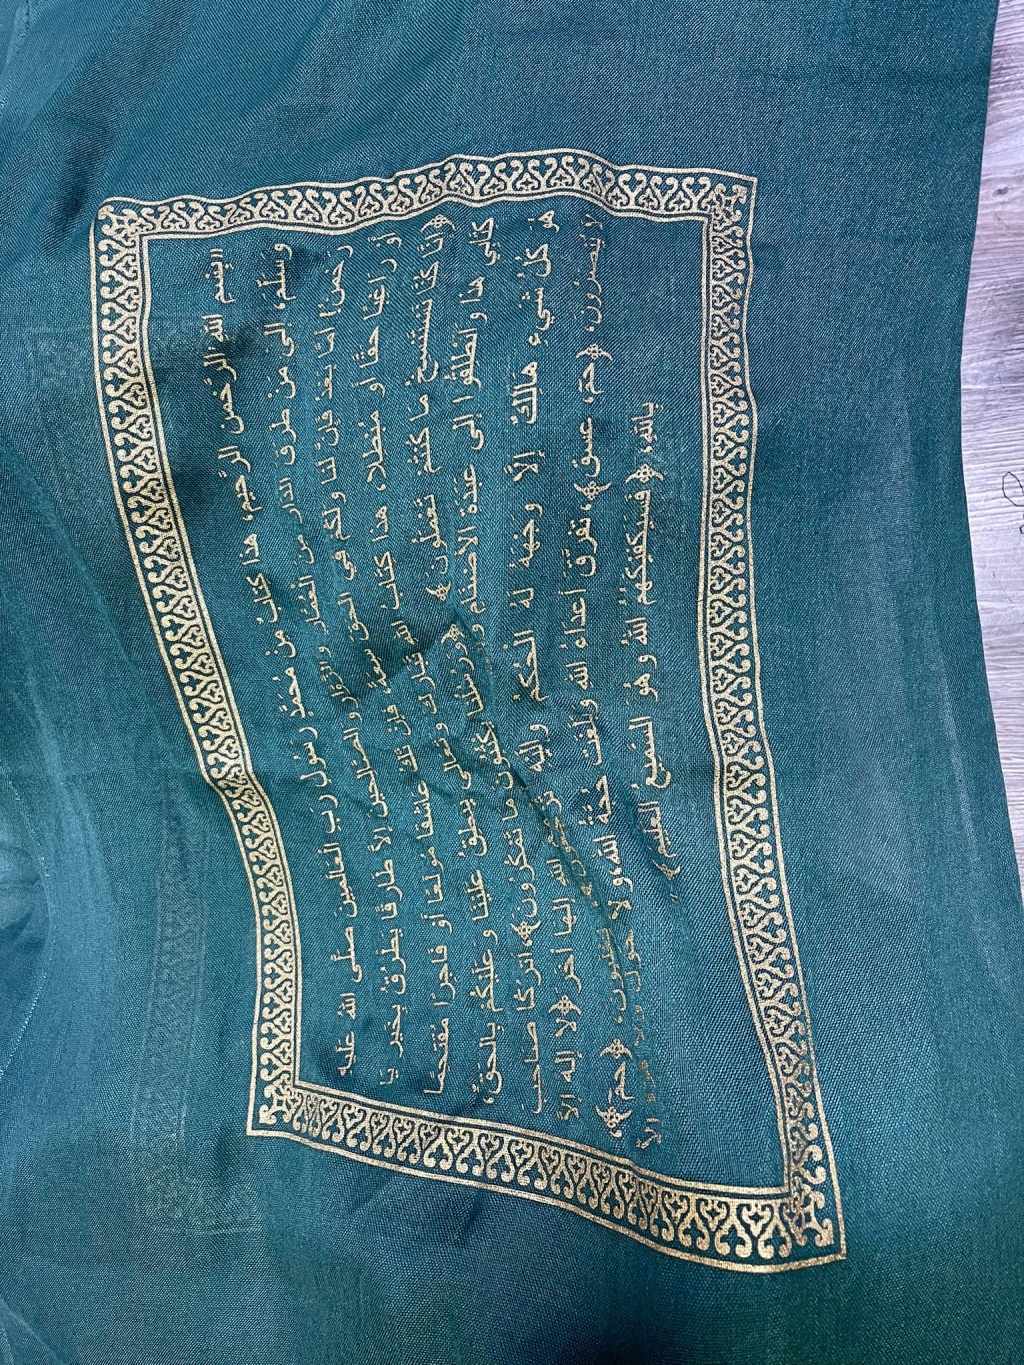 "بِسْمِ اللهِ الرَّحْمنِ الرَّحِيمِ، هَذَا كِتَابٌ مِنْ مُحَمَّدٍ رَسُولِ رَبِّ الْعَالَمِينَ صَلَّى اللهُ عَلَيْهِ
وَسَلَّمَ، إِلَى مَنْ طَرَقَ الدَّارَ مِنَ الْعُمَّارِ وَالزُّوَّارِ وَالصَّالِحِينَ إِلاَّ طَارِقًا يَطْرُقُ بِخَيْرٍ يَا
رَحْمنُ! أَمَّا بَعْدُ فَإِنَّ لَنَا وَلَكُمْ فِي الْحَقِّ سَعَةً، فَإِنْ تَكُ عَاشِقًا مُولَعًا أَوْ فَاجِرًا مُقْتَحِمًا
أَوْ رَاغِبًا حَقًّا أَوْ مُبْطِلاً، هَذَا كِتَابُ اللهِ تَبَارَكَ وَتَعَالَى يَنْطِقُ عَلَيْنَا وَعَلَيْكُمْ بِالْحَقِّ،
﴿إِنَّا كُنَّا نَسْتَنْسِخُ مَا كُنْتُمْ تَعْمَلُونَ﴾ ﴿وَرُسُلُنَا يَكْتُبُونَ مَا تَمْكُرُونَ﴾، اتركا صَاحِبَ
كِتَابِي هَذَا وَانْطَلِقُوا إِلَى عَبَدَةِ الأَصْنَامِ اللهِ إِلَهًا آخَرَ ﴿لاَ إِلَهَ إِلاَّ
هُوَ كُلُّ شَيْءٍ هَالِكٌ إِلاَّ وَجْهَهُ لَهُ الْحُكْمُ وَإِلَيْهِ تُرْجَعُونَ﴾ ﴿حم﴾
لاَ تُنْصَرُونَ، ﴿حم عسق﴾، تَفَرَّقَ أَعْدَاءُ اللهِ وَبَلَغَتْ حُجَّةُ اللهِ، وَلاَ حَوْلَ وَلاَ قُوَّةَ إِلاَّ
بِاللهِ، ﴿فَسَيَكْفِيكَهُمُ اللهُ وَهُوَ السَّمِيعُ الْعَلِيمُ﴾"